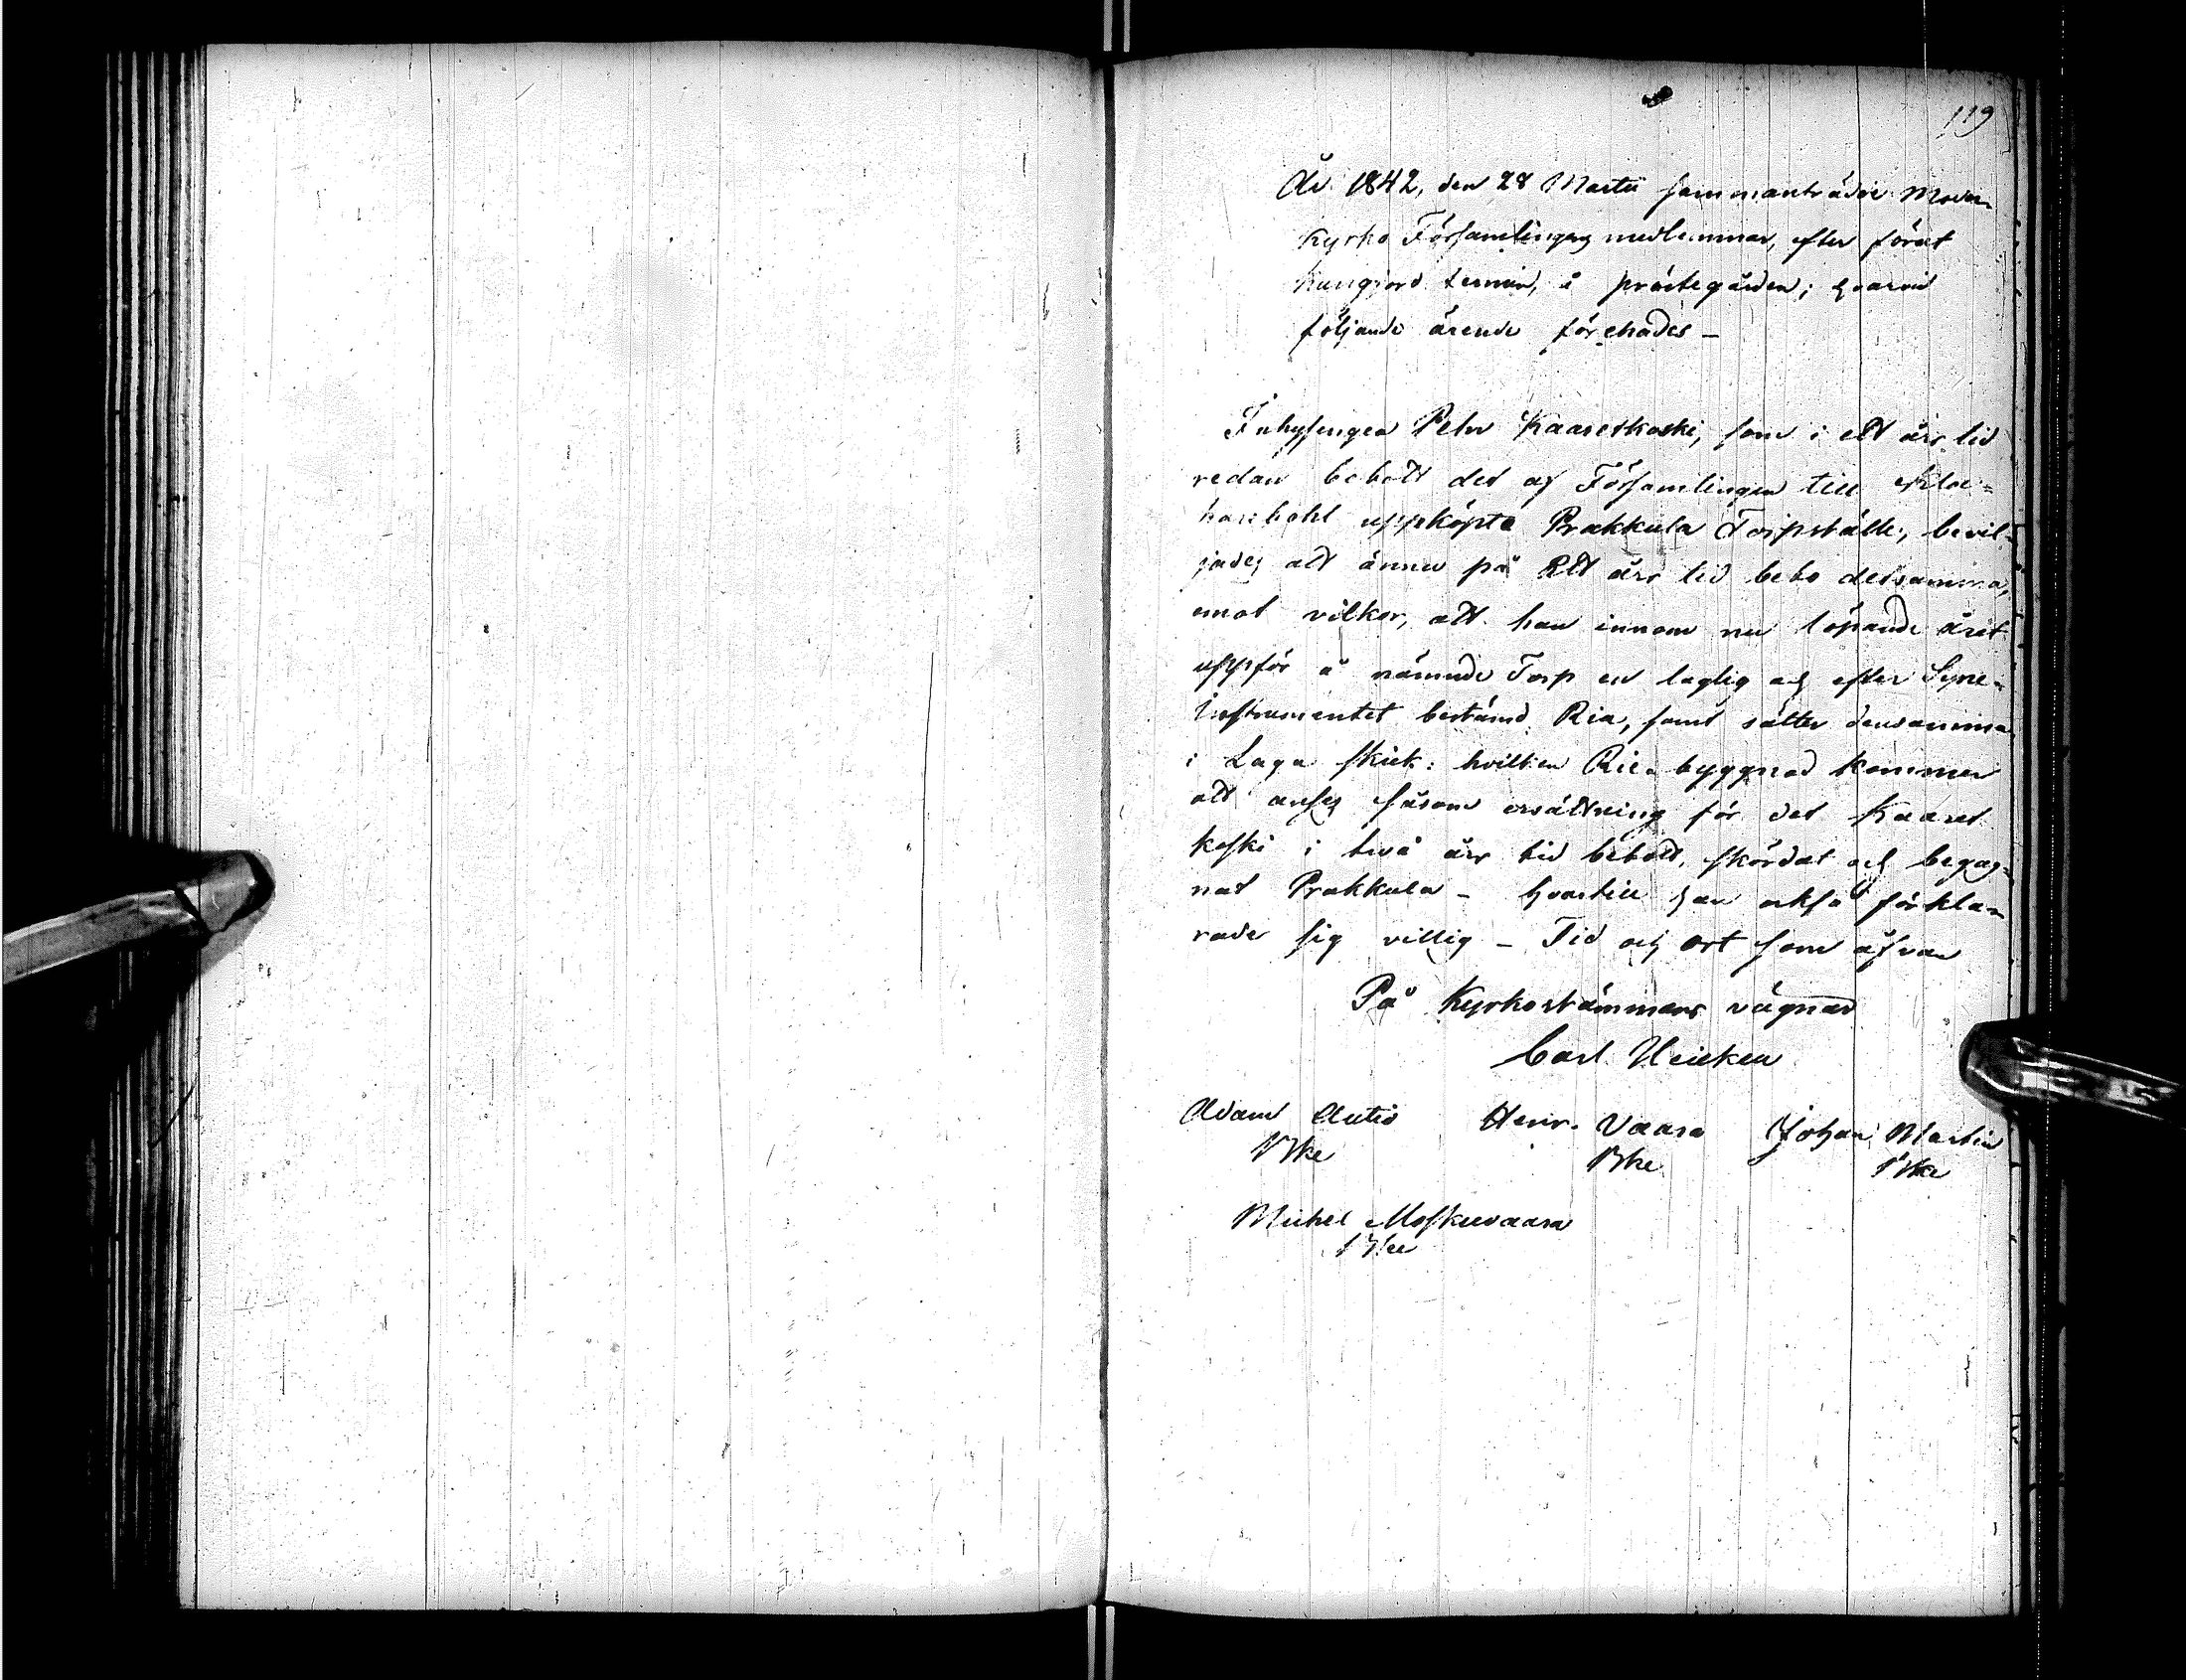 119
År 1842, den 28 Martii sammanträdde Moder-
Kyrko Församlingens medlemmar, efter förut
kungjord termin, i prästegården; hvarvid
följande ärende förehades –
Inhysingen Petr Kaaretkoski, som i ett års tid
redan bebott det af Församlingen till
uppköpta Prakkula Torpställe, bevil-
jades att ännu på Ett års tid bebo detsamma,
emot vilkor, att han innom nu löpande året
uppför å nämnde Torp en laglig och efter Syne-
Instrumentet bestämd Ria, samt sätter densamma
i Laga skick: hvilken Rie-byggnad kommer
att anses såsom ersättning för det Kaaret
koski i två års tid bebott, skördat och begag-
nat Prakkula – hvartill han också förkla-
rade sig villig – Tid och ort som ofvan
På Kyrkostämmans vägnar
Carl Heicken
Adam Autio Henr. Vaara Johan Martin
Michel Moskuvaara